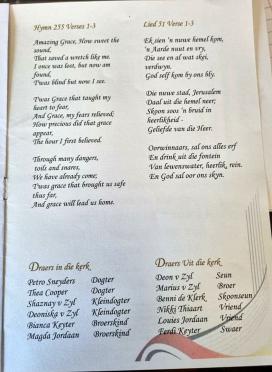 Hymn 255 Verses 1-3
Amazing Grace, How sweet the
sound,
That saved a wretch like me.
I once was lost, but now am
found,
T'was blind but now I see.
T'was Grace that taught my
heart to fear,
And Grace, my fears relieved;
How precious did that grace
appear,
The hour I first believed.
Through many dangers,
toils and snares,
We have already come;
T'was grace that brought us safe
thus far,
And grace will lead us home.
Lied 51 Verse 1-3
Ek sien 'n nuwe hemel kom,
'n Aarde nuut en vry,
Die see en al wat skei,
verdwyn,
God self kom by ons bly.
Die nuwe stad, Jerusalem
Daal uit die hemel neer;
Skoon soos 'n bruid in
heerlikheid -
Geliefde van die Heer.
Oorwinnaars, sal ons alles erf
En drink uit die fontein
Van lewenswater, heerlik, rein.
En God sal oor ons skyn.
Draers in die kerk
Petro Sneyders Dogter
Thea Cooper Dogter
Shaznay v Zyl Kleindogter
Deoniska v Zyl Kleindogter
Bianca Keyter Broerskind
Magda Jordaan Broerskind
Draers Uit die kerk
Deon v Zyl Seun
Marius v Zyl Broer
Benni de Klerk Skoonseun
Nikki Thiaart Vriend
Louies Jordaan Vriend
Ferdi Keyter Swaer